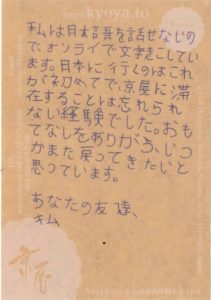 kyoya.to
私は日本語を話せないの
で、オンライで文字起こしてい
ます。日本に行くのはこれ
が初めてで、京屋に滞
在することは忘れられ
ない経験でした。おも
てなしをありがう、いつ
かまた戻ってきたいと
思っています。
あなたの友達、
キム
京屋